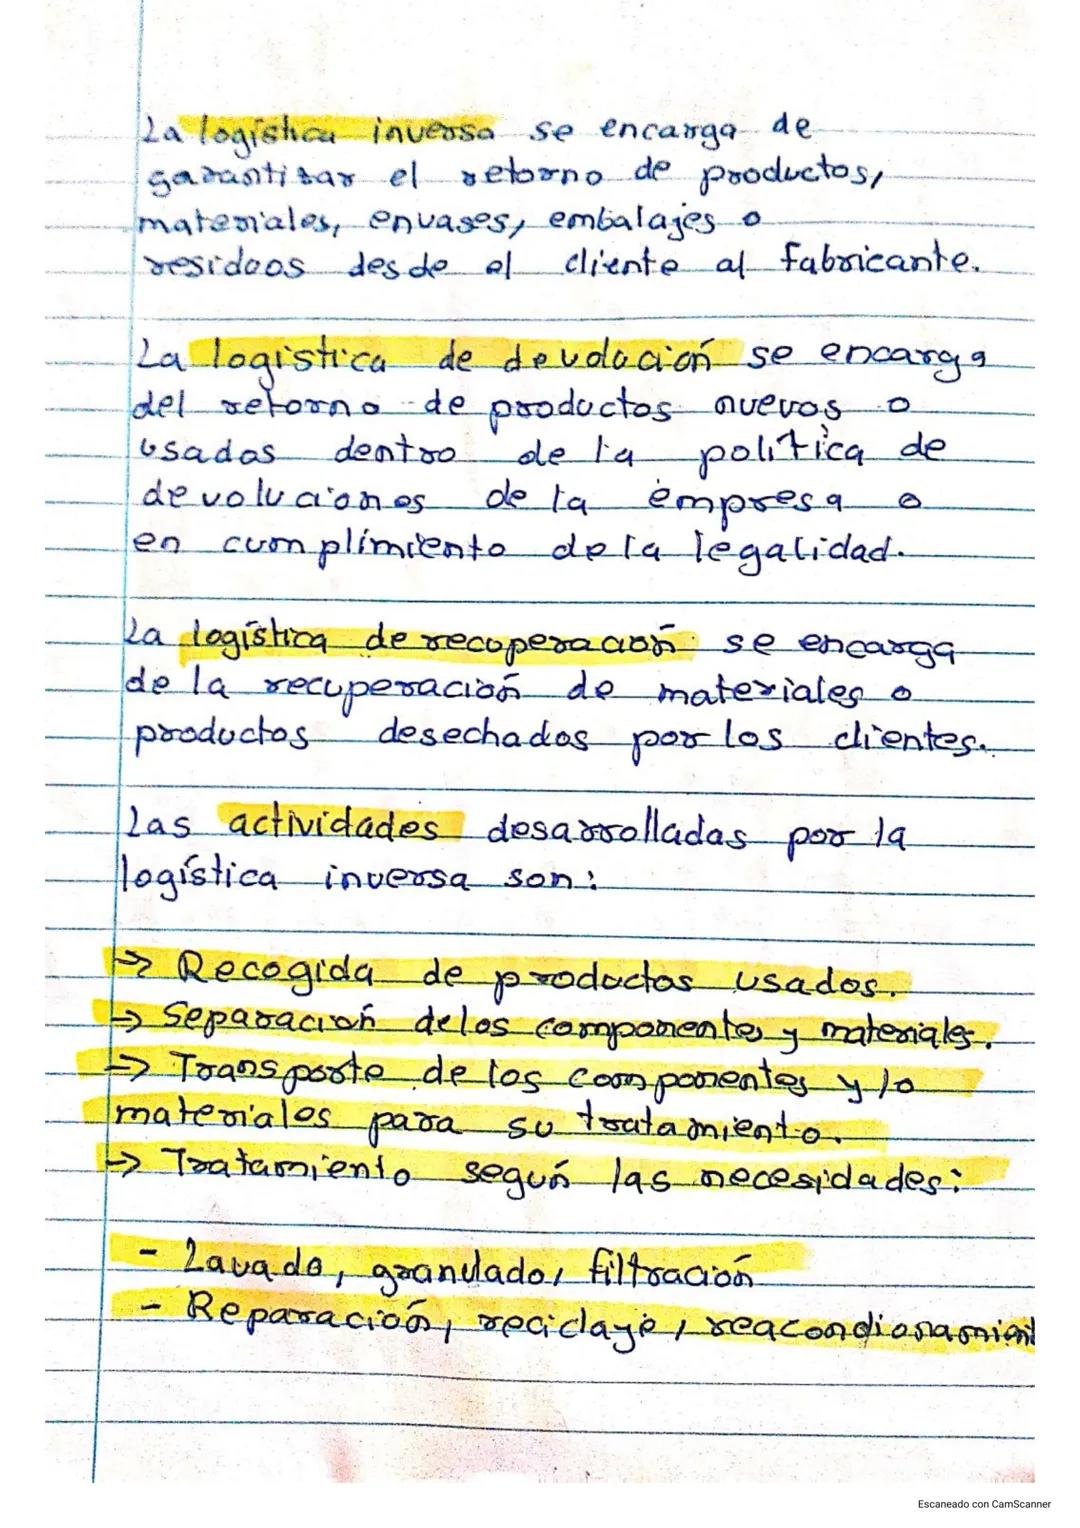 La logística inversa se encarga de
garantizar el retorno de productos,
materiales, envases, embalajes o
residuos desde el cliente al fabricante.
La logística de devolución se encarga
del retorno de productos nuevos o
usados dentro de la política de
devoluciones de la empresa o
en cumplimiento de la legalidad.
La logística de recuperación se encarga
de la recuperación de materiales o
productos desechados por los clientes.
Las actividades desarrolladas por la
logística inversa son:
→ Recogida de productos usados.
→ Separación de los componentes y materiales.
→ Transporte de los componentes y/o
materiales para su tratamiento.
→ Tratamiento según las necesidades:
- Lavado, granulado, filtración
- Reparación, reciclaje, reacondionamient
Escaneado con CamScanner